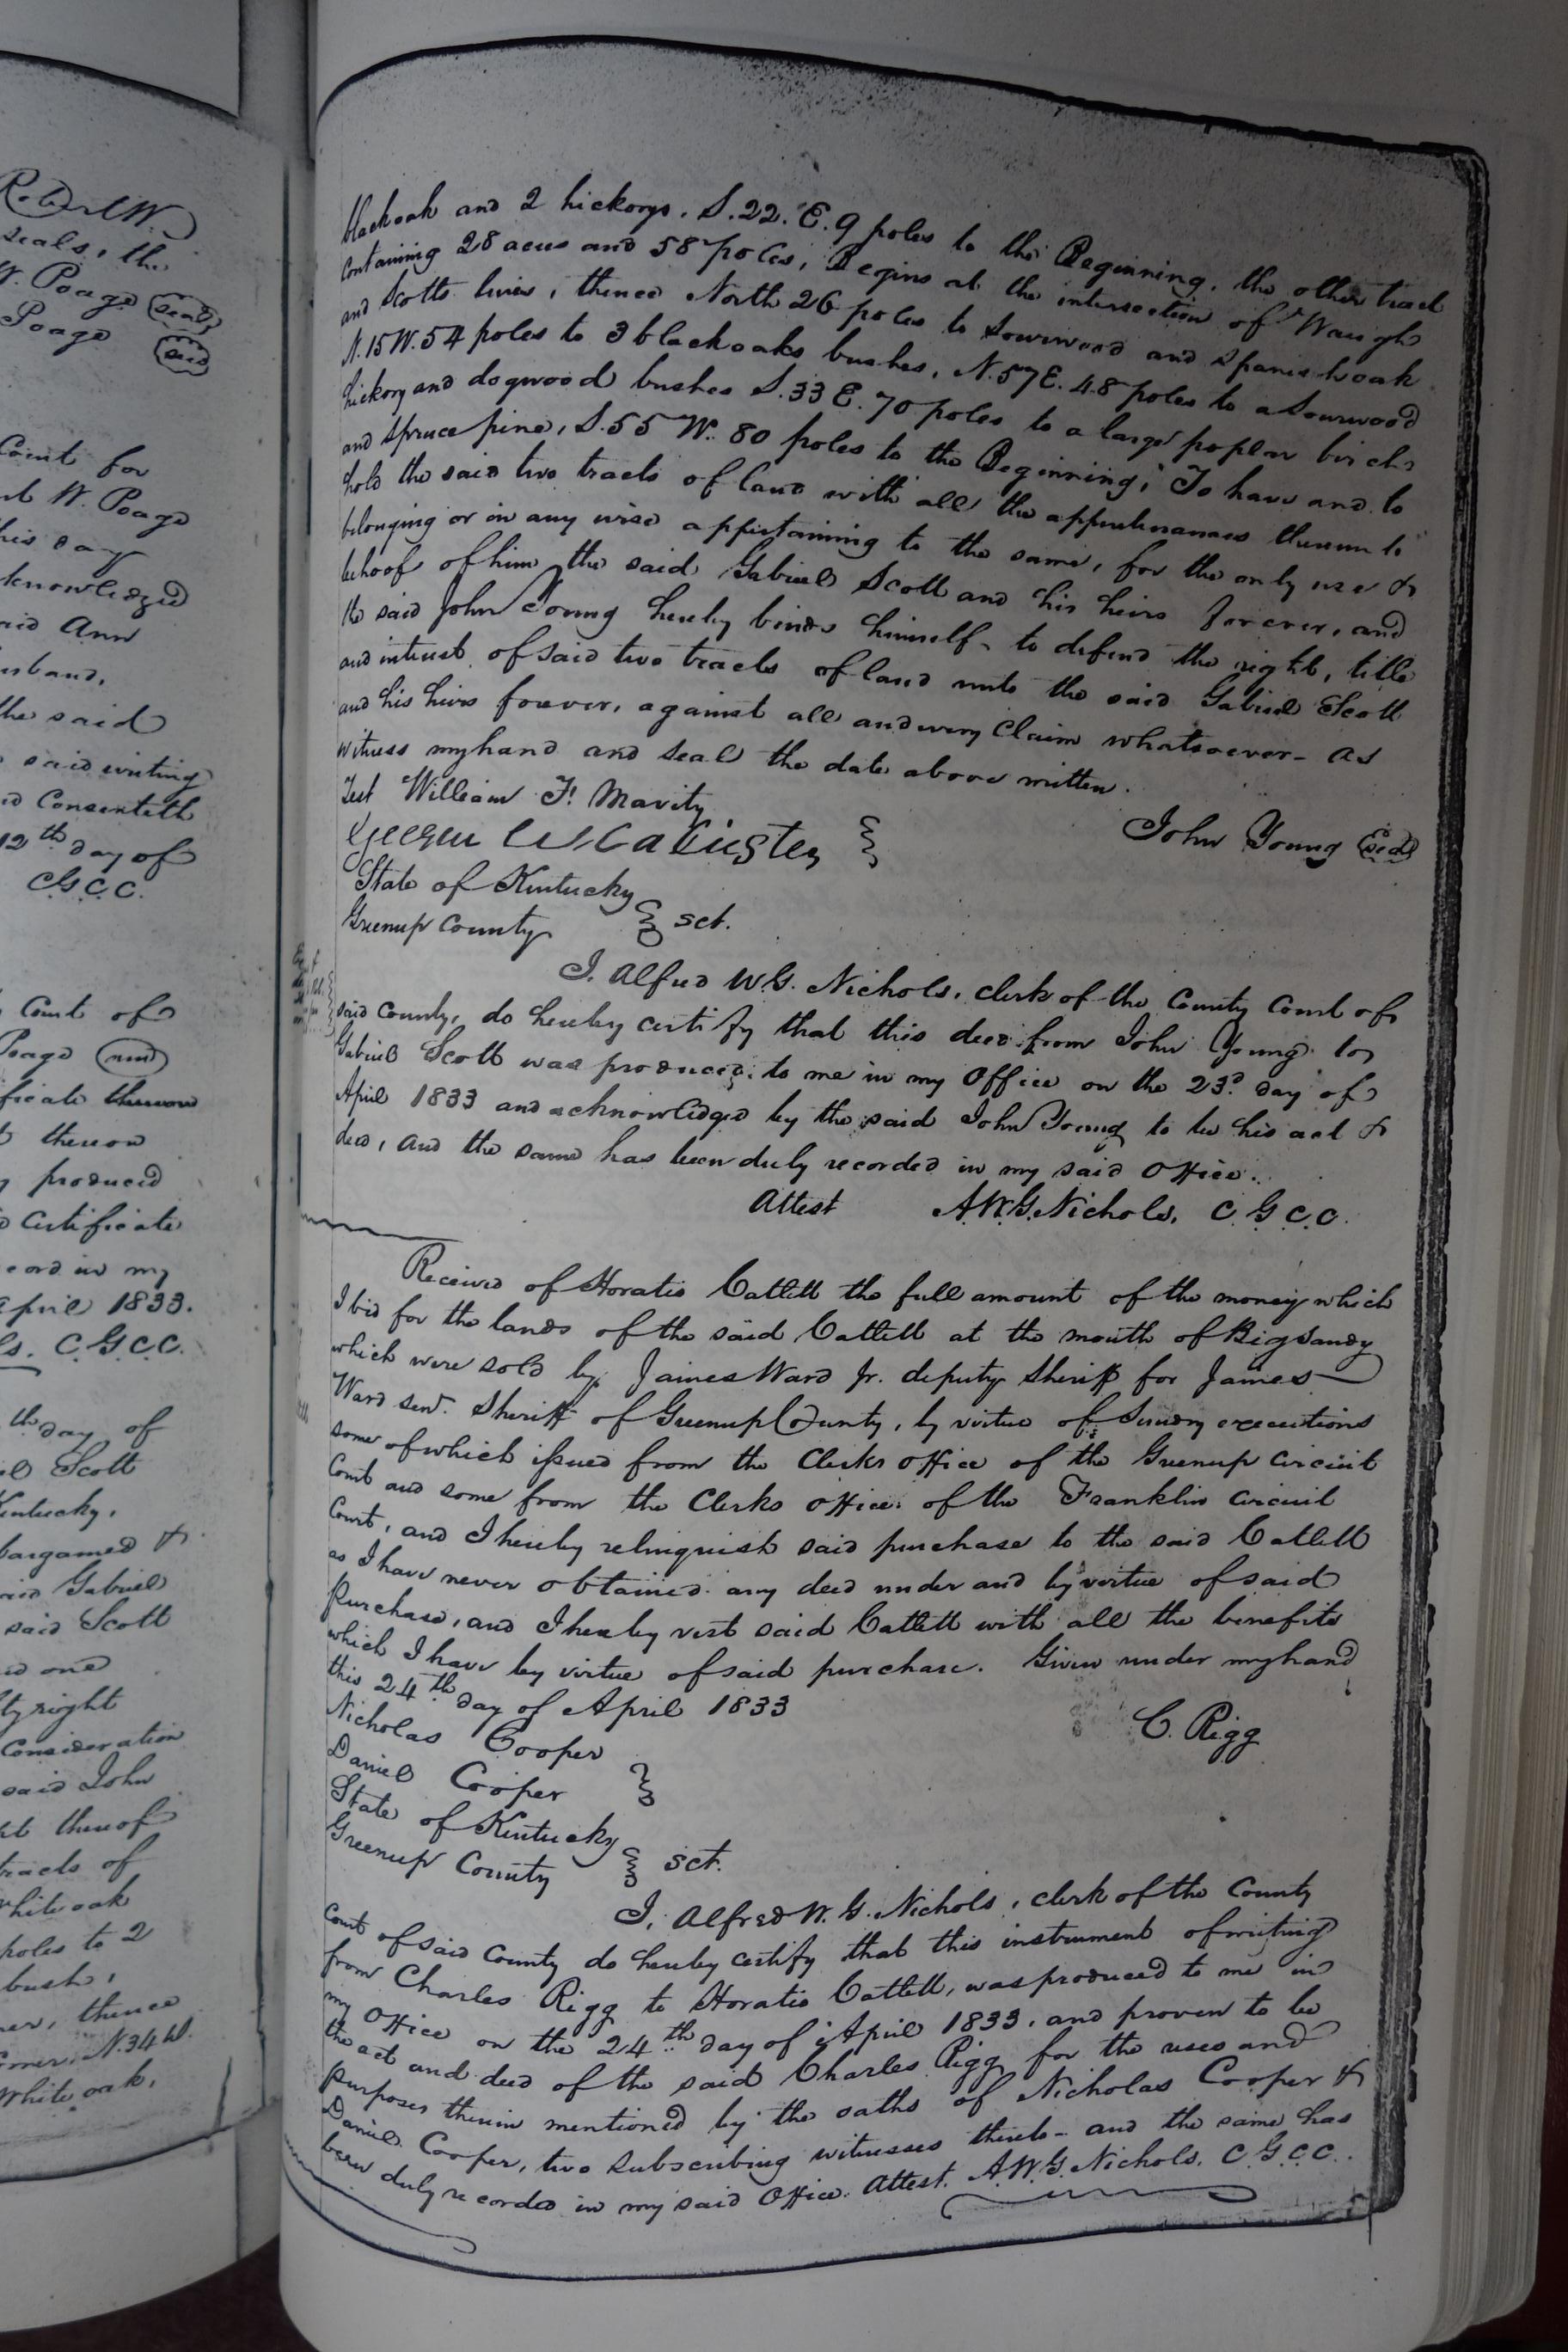 Robert W.
seals, the
W. Poage seal
Poage seal
Court for
W. Poage
this day
knowledged
said Ann
husband,
the said
said writing
Consenteth
12th day of
C.G.C.C.
Court of
Poage and
ficate thereon
thereon
produced
Certificate
record in my
April 1833.
C.G.C.C.
th day of
Scott
Kentucky,
bargained &
said Gabriel
said Scott
one
right
Consideration
said John
thereof
tracts of
white oak
poles to 2
bush,
thence
N.34 W.
White oak,
blackoak and 2 hickorys, S.22.E.9 poles to the Beginning, the other tract
containing 28 acres and 58 poles, Begins at the intersection of Waughs
and Scotts lines, thence North 26 poles to Sourwood and Spanish oak
N.15 W.54 poles to 3 blackoaks bushes, N.57 E. 48 poles to a Sourwood
hickory and dogwood bushes S.33 E. 70 poles to a large poplar birch
and Spruce pine, S.55 W. 80 poles to the Beginning; To have and to
hold the said two tracts of land with all the appurtenances thereunto
belonging or in any wise appertaining to the same, for the only use &
behoof of him the said Gabriel Scott and his heirs forever, and
the said John Young hereby binds himself to defend the right, title
and interest of said two tracts of land unto the said Gabriel Scott
and his heirs forever, against all and every Claim whatsoever- As
witness my hand and seal the date above written.
Test William F. Mavity
John Young Seal
State of Kentucky
Greenup County sct.
I. Alfred W.G. Nichols, clerk of the County Court of
said County, do hereby certify that this deed from John Young to
Gabriel Scott was produced to me in my Office on the 23d day of
April 1833 and acknowledged by the said John Young to be his act &
deed, and the same has been duly recorded in my said Office.
Attest A.W.G. Nichols, C.G.C.C.
Received of Horatio Catlett the full amount of the money which
I bid for the lands of the said Catlett at the mouth of Big Sandy
which were sold by James Ward Jr. deputy Sheriff for James
Ward senr. Sheriff of Greenup County, by virtue of Sundry executions
some of which issued from the Clerks office of the Greenup Circuit
Court and some from the Clerks office of the Franklin Circuit
Court, and I hereby relinquish said purchase to the said Catlett
as I have never obtained any deed under and by virtue of said
Purchase, and I hereby vest said Catlett with all the benefits
which I have by virtue of said purchase. Given under my hand
this 24th day of April 1833
C. Rigg
Nicholas Cooper
Daniel Cooper
State of Kentucky
Greenup County sct.
I, Alfred W. G. Nichols, clerk of the County
Court of said County do hereby certify that this instrument of writing
from Charles Rigg to Horatio Catlett, was produced to me in
my Office on the 24th day of April 1833, and proven to be
the act and deed of the said Charles Rigg for the uses and
purposes therein mentioned by the oaths of Nicholas Cooper &
Daniel Cooper, two subscribing witnesses thereto- and the same has
been duly recorded in my said Office. Attest. A.W.G. Nichols, C.G.C.C.